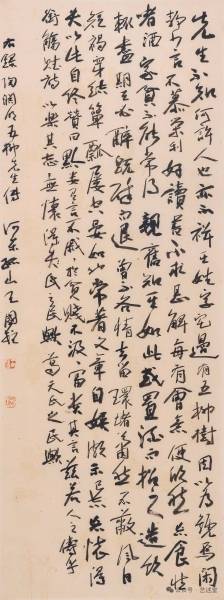 先生不知何許人也亦不詳其姓字宅邊有五柳樹因以為號焉閑
靜少言不慕榮利好讀書不求甚解每有會意便欣然忘食性
嗜酒家貧不能常得親舊知其如此或置酒而招之造飲
輒盡期在必醉既醉而退曾不吝情去留環堵蕭然不蔽風日
短褐穿結簞瓢屢空晏如常著文章自娛頗示己志忘懷得
失以此自終贊曰黔婁有言不戚於貧賤不汲富貴其言茲若人之儔乎
銜觴賦詩以樂其志無懷氏之民歟葛天氏之民歟
右錄陶淵明五柳先生傳 河東 山王國
公众号